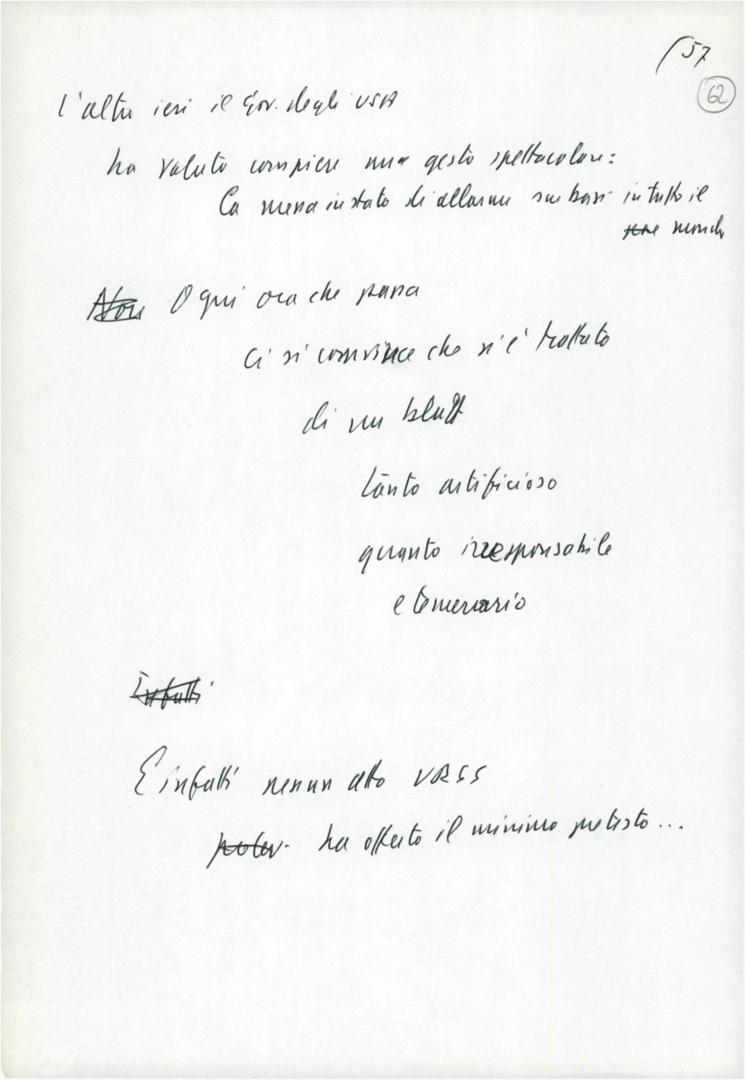 57
62
L'altro ieri il Gov. degli USA
ha voluto compiere un gesto spettacolare:
la messa in stato di allarme sue basi in tutto il
mondo
Ogni ora che passa
ci si convince che si è trattato
di un bluff
tanto artificioso
quanto irresponsabile
e temerario
Infatti
E infatti nessun atto URSS
ha offerto il minimo pretesto...